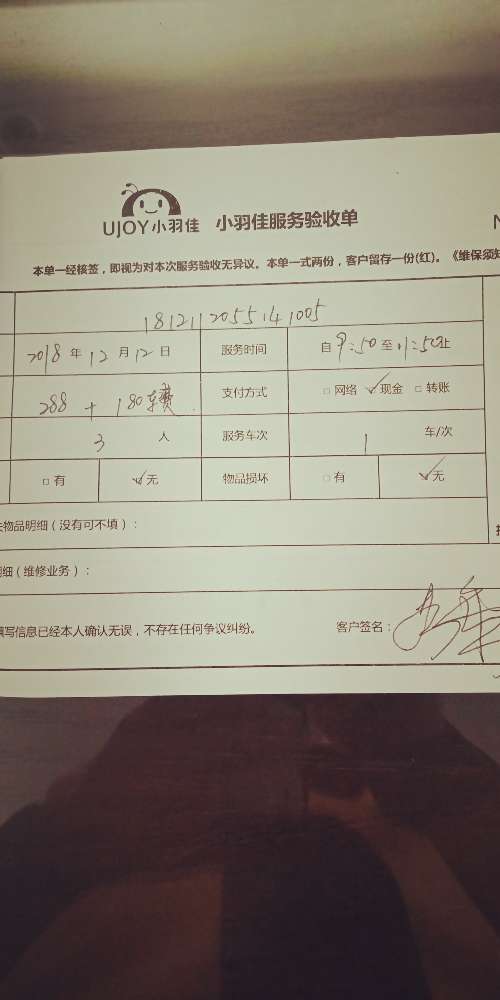 UJOY小羽佳 小羽佳服务验收单
本单一经核签，即视为对本次服务验收无异议。本单一式两份，客户留存一份(红)。《维保须知
181211205514100S
2018 年 12 月 12 日 服务时间 自 9:50 至 11:50止
288 + 180车费 支付方式 □ 网络 ☑ 现金 □ 转账
3 人 服务车次 1 车/次
□ 有 ☑ 无 物品损坏 □ 有 ☑ 无
物品明细（没有可不填）：
细（维修业务）：
填写信息已经本人确认无误，不存在任何争议纠纷。 客户签名：